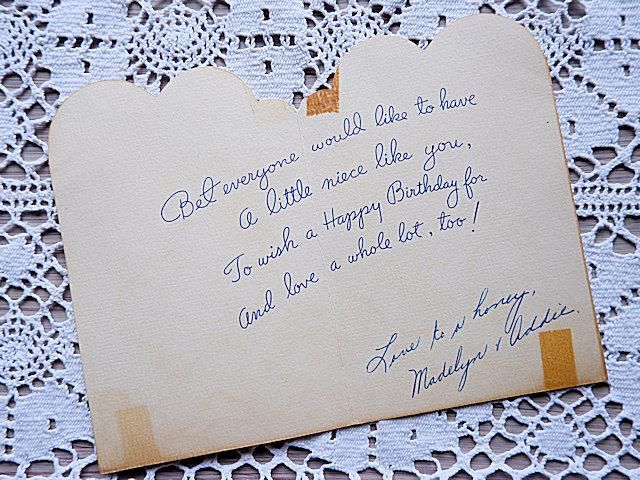 Bet everyone would like to have
A little niece like you,
To wish a Happy Birthday for
And love a whole lot, too!
Love to a honey,
Madelyn & Addie.